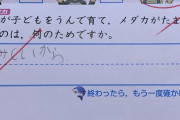 が子どもをうんで育て、メダカがたま
のは、何のためですか。
終わったら、もう一度確か